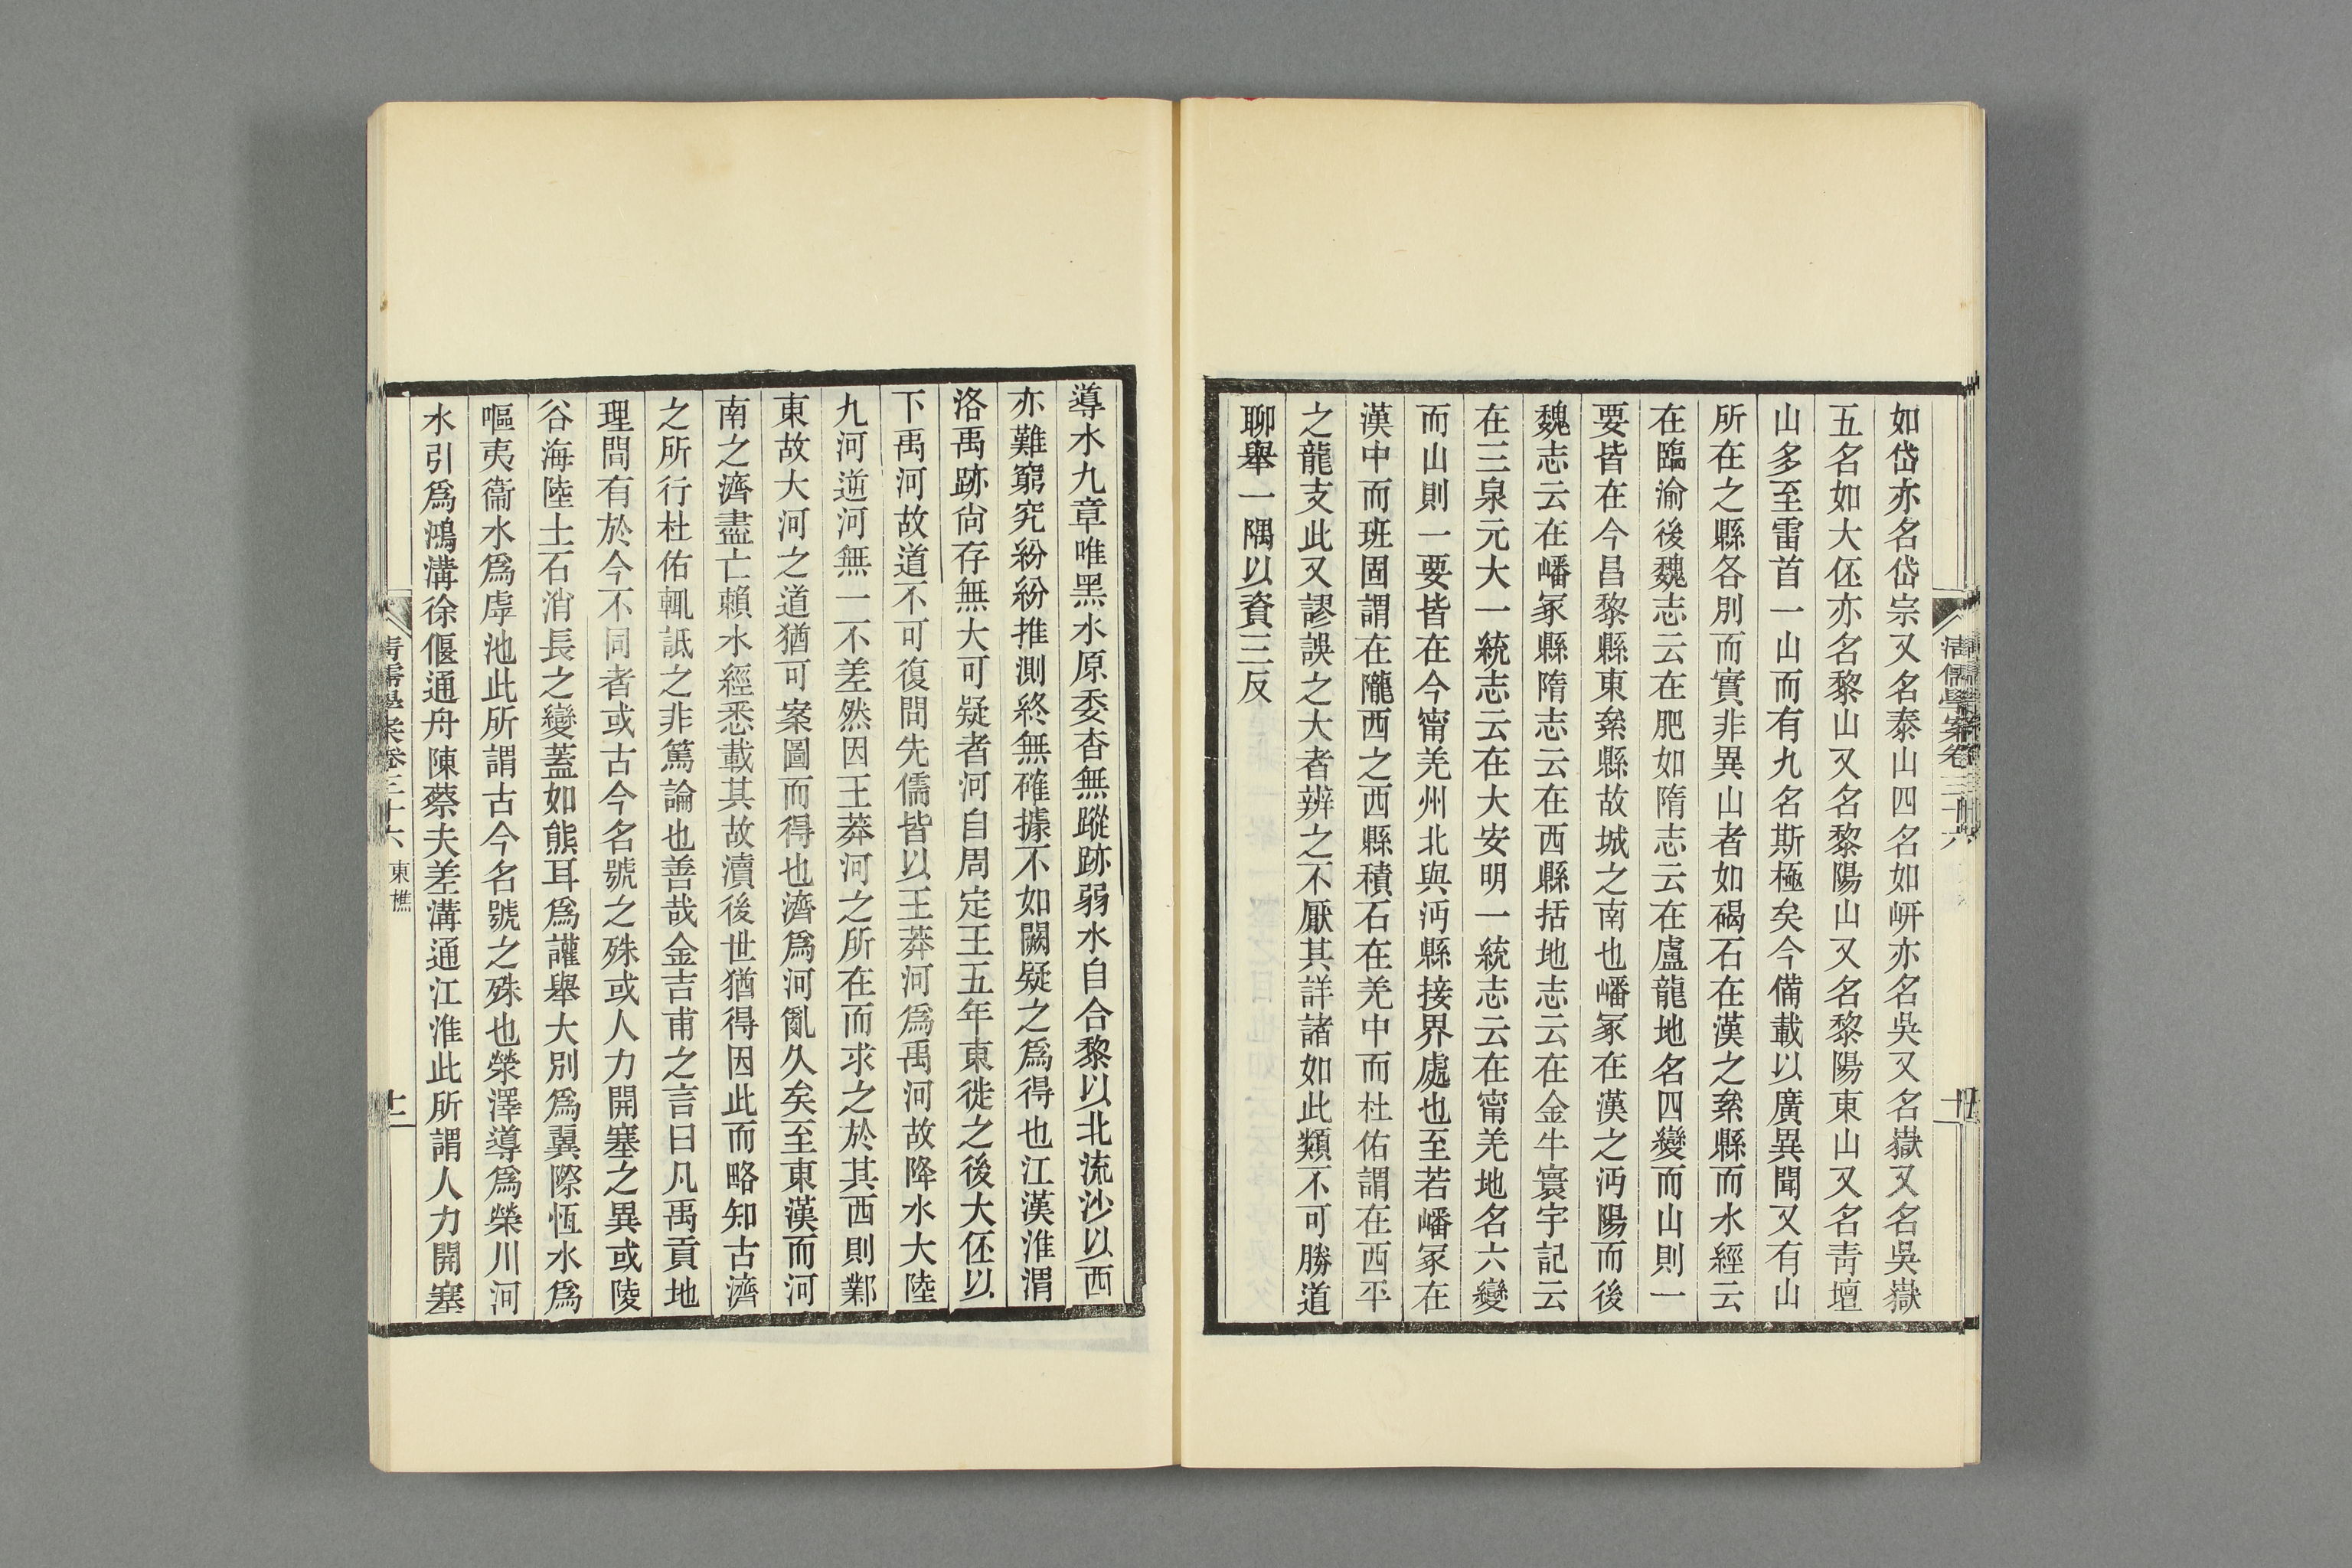 如岱亦名岱宗又名泰山四名如岍亦名吳又名嶽又名吳嶽
五名如大伾亦名黎山又名黎陽山又名黎陽東山又名靑壇
山多至雷首一山而有九名斯極矣今備載以廣異聞又有山
所在之縣各別而實非異山者如碣石在漢之絫縣而水經云
在臨渝後魏志云在肥如隋志云在盧龍地名四變而山則一
要皆在今昌黎縣東絫縣故城之南也嶓冢在漢之沔陽而後
魏志云在嶓冢縣隋志云在西縣括地志云在金牛寰宇記云
在三泉元大一統志云在大安明一統志云在甯羌地名六變
而山則一要皆在今甯羌州北與沔縣接界處也至若嶓冢在
漢中而班固謂在隴西之西縣積石在羌中而杜佑謂在西平
之龍支此又謬誤之大者辨之不厭其詳諸如此類不可勝道
聊舉一隅以資三反
導水九章唯黑水原委杳無蹤跡弱水自合黎以北流沙以西
亦難窮究紛紛推測終無確據不如闕疑之爲得也江漢淮渭
洛禹跡尙存無大可疑者河自周定王五年東徙之後大伾以
下禹河故道不可復問先儒皆以王莽河爲禹河故降水大陸
九河逆河無一不差然因王莽河之所在而求之於其西則鄴
東故大河之道猶可案圖而得也濟爲河亂久矣至東漢而河
南之濟盡亡賴水經悉載其故瀆後世猶得因此而略知古濟
之所行杜佑輒詆之非篤論也善哉金吉甫之言曰凡禹貢地
理間有於今不同者或古今名號之殊或人力開塞之異或陵
谷海陸土石消長之變蓋如熊耳爲讙舉大別爲翼際恆水爲
嘔夷衞水爲虖池此所謂古今名號之殊也滎澤導爲滎川河
水引爲鴻溝徐偃通舟陳蔡夫差溝通江淮此所謂人力開塞
清儒學案卷三十六 東樵
十一